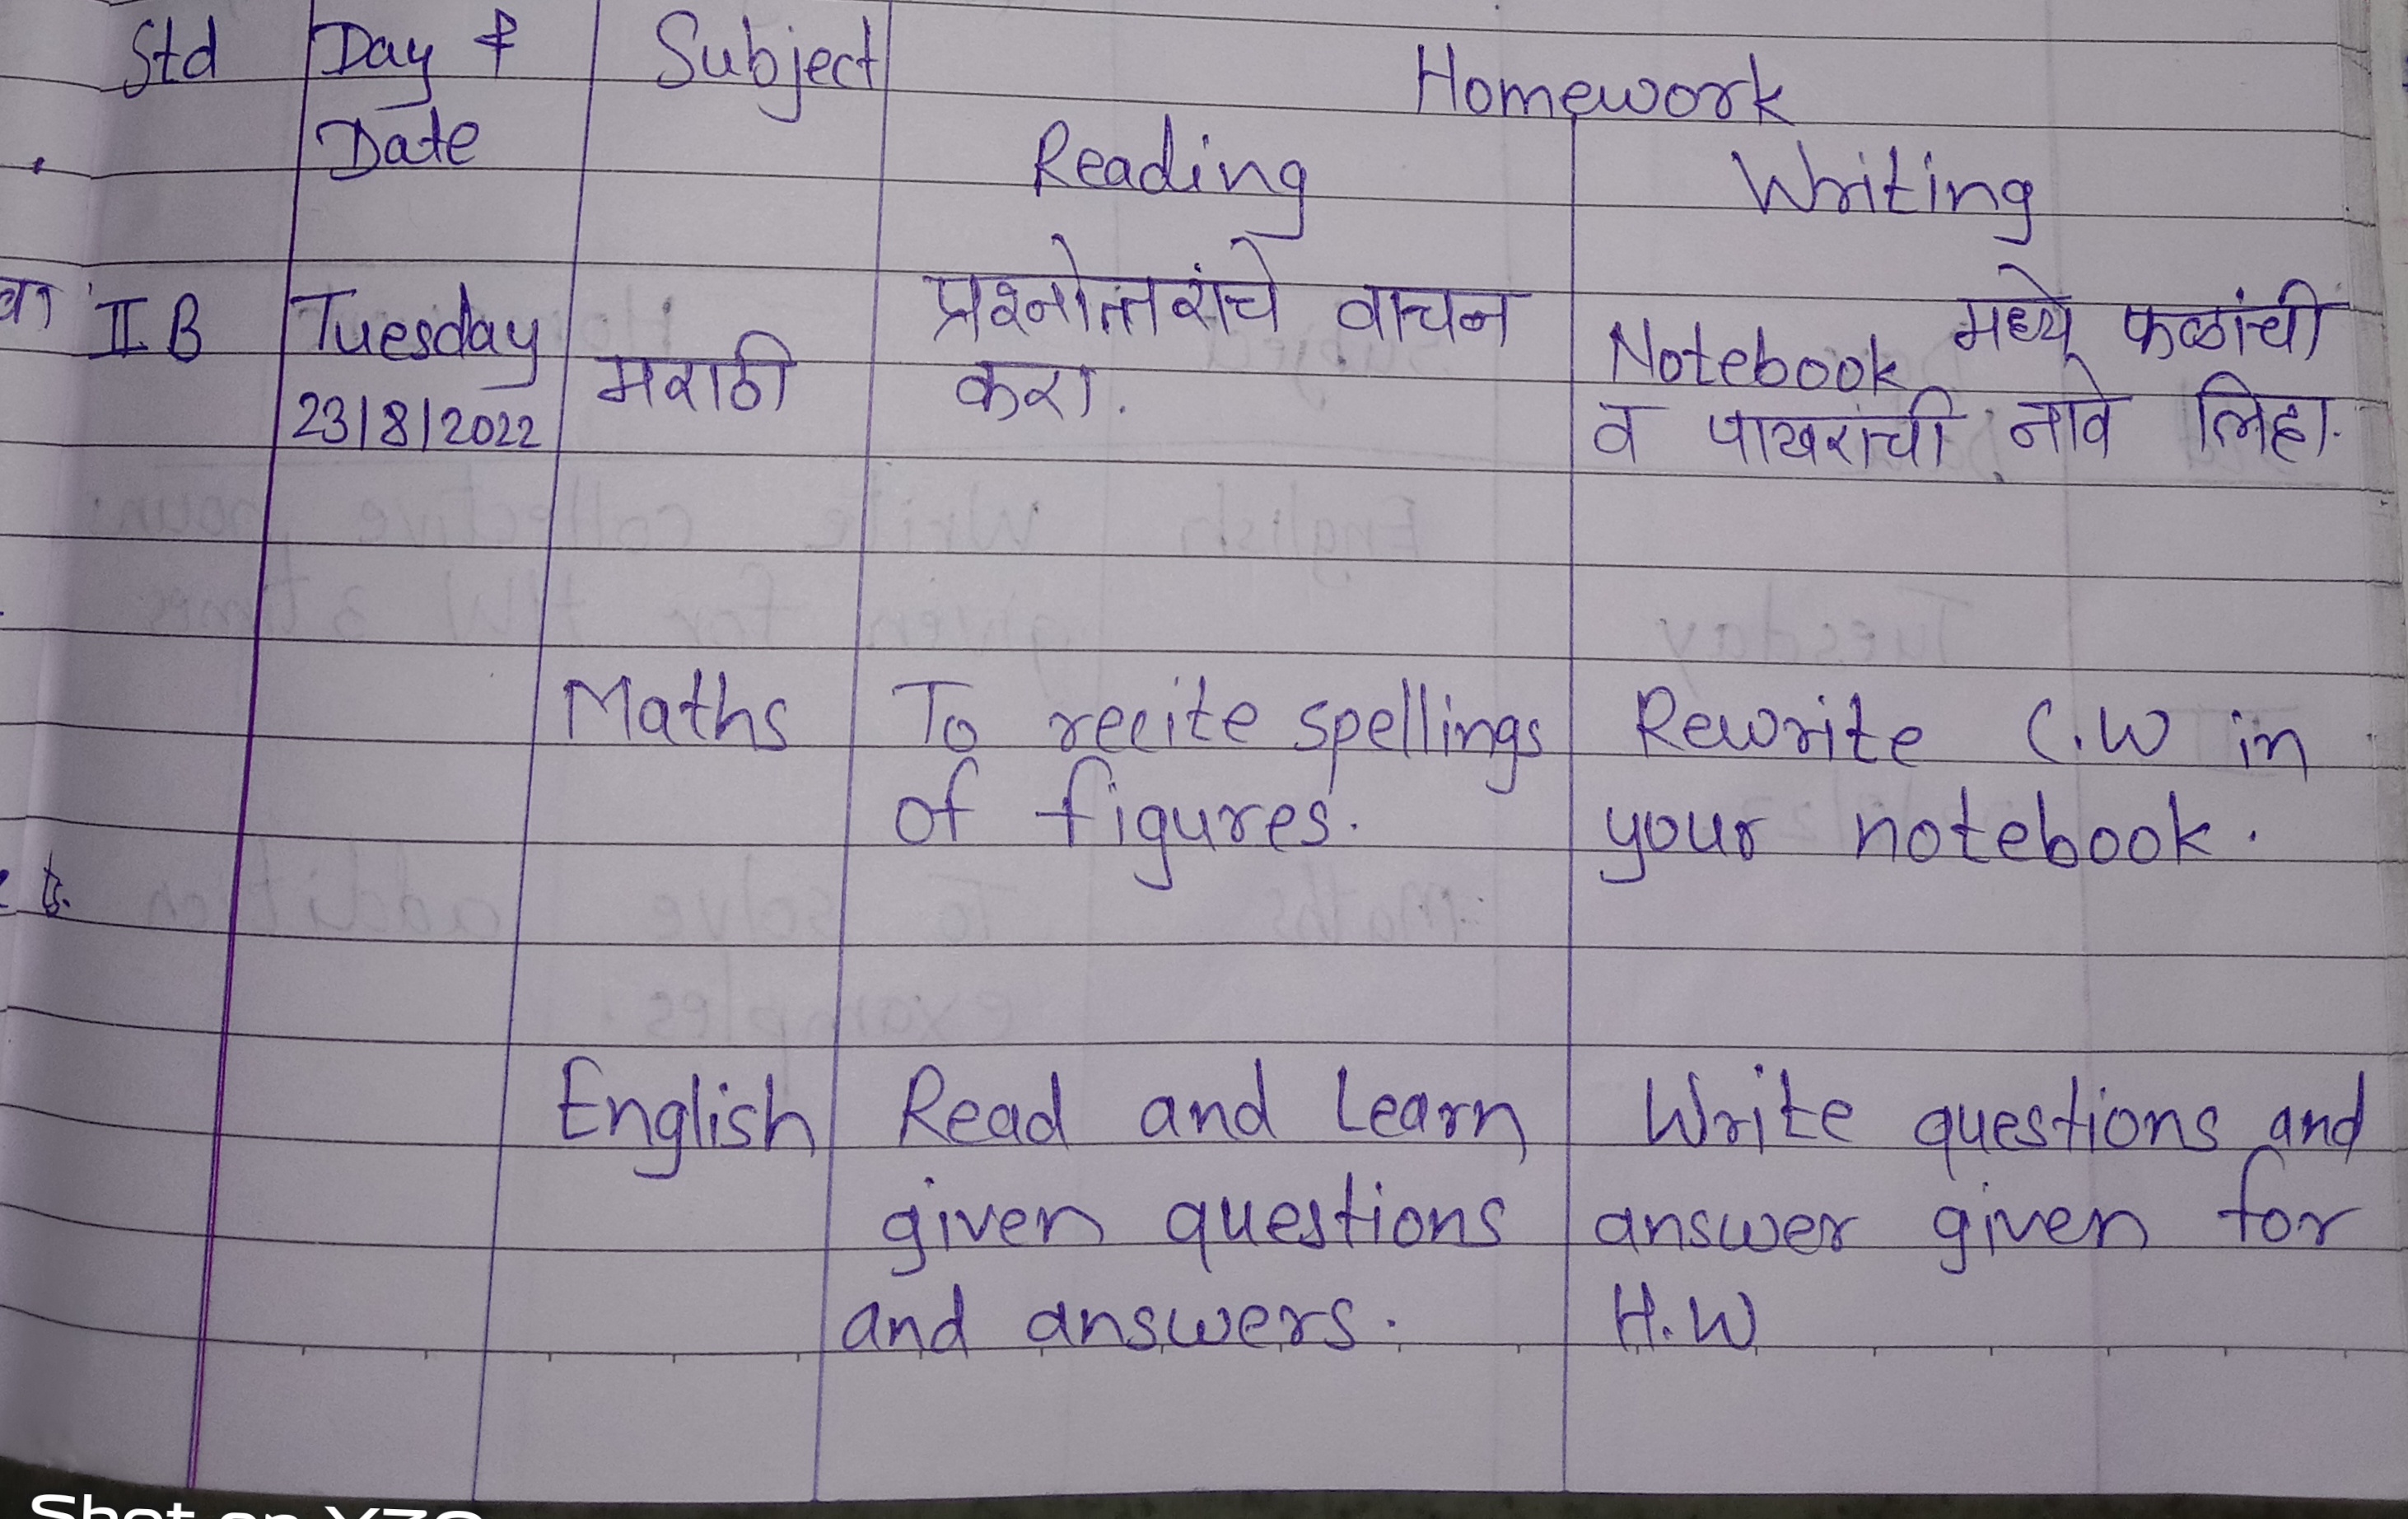 Std Day & Subject Homework
Date Reading Writing
II B Tuesday मराठी प्रश्नोत्तरांचे वाचन Notebook मध्ये फळांची
23/8/2022 करा. व पाखरांची नावे लिहा.
Maths To recite spellings Rewrite C.W in
of figures. your notebook.
English Read and Learn Write questions and
given questions answer given for
and answers. H.W